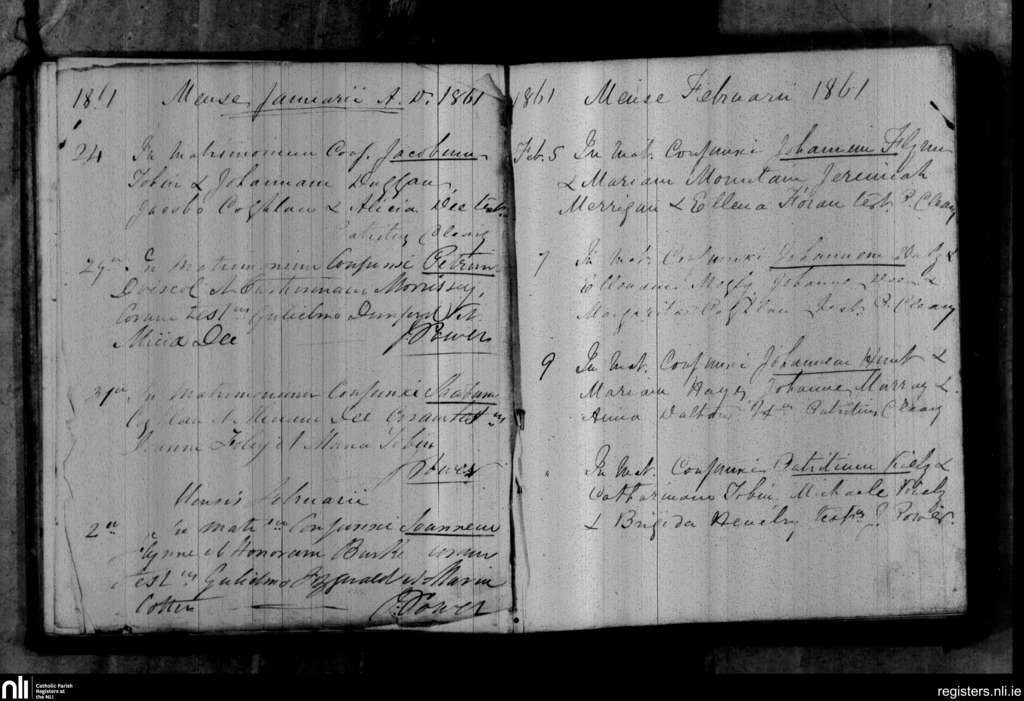 1861 Mense Januarii A. D. 1861
24 In Matrimonium Conj. Jacobum
Tobin & Johannam Duggan,
Jacobo Coghlan & Alicia Dee test.
Patritius Cleary
29a. In Matrimonium Conjunxi Petrum
Driscol et Catherinam Morrissey,
Coram testus Gulielmo Dunford et
Alicia Dee J Power
31a In Matrimonium Conjunxi
et Mariam Dee Coram testus
Joanne Foley et Maria Tobin
J Power
Mensis Februarii
2a In matrum Conjunxi Joannem
Flynne et Honoram Burke coram
testus Gulielmo Fitzgerald et Maria
Cotter J Power
1861 Mense Februarii 1861
Feb. 5 In Mat. Conjunxi Johannem Flynn
& Mariam Mountain Jeremiah
Merrigan & Ellena Horan test. P. Cleary
7 In Mat. Conjunxi Johannem Daly &
Johanne &
Margarita Coghlan Test. P. Cleary
9 In Mat. Conjunxi Johannem Hunt &
Mariam Hayes, Johanne Murray &
Anna Dalton, Patritius Cleary
" In Mat. Conjunxi Patritium Kiely &
Catharinam Tobin, Michaele Kiely
& Brigida Hevehy testis J. Power.
nli Catholic Parish
Registers at
the NLI
registers.nli.ie